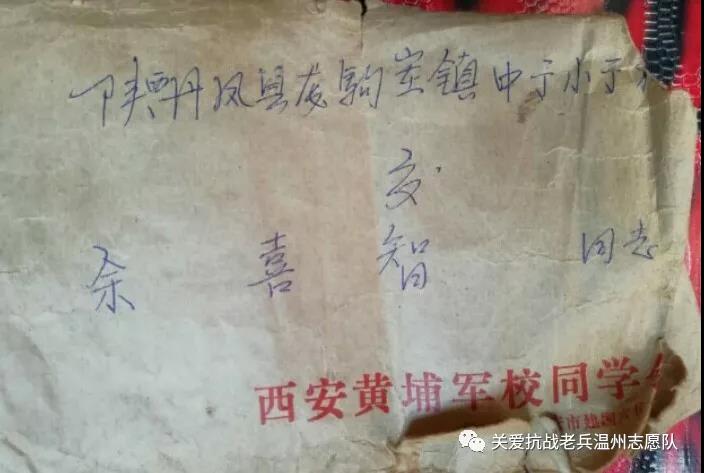 陕西丹凤县龙驹寨镇中
交
余喜智同志
西安黄埔军校同学
关爱抗战老兵温州志愿队